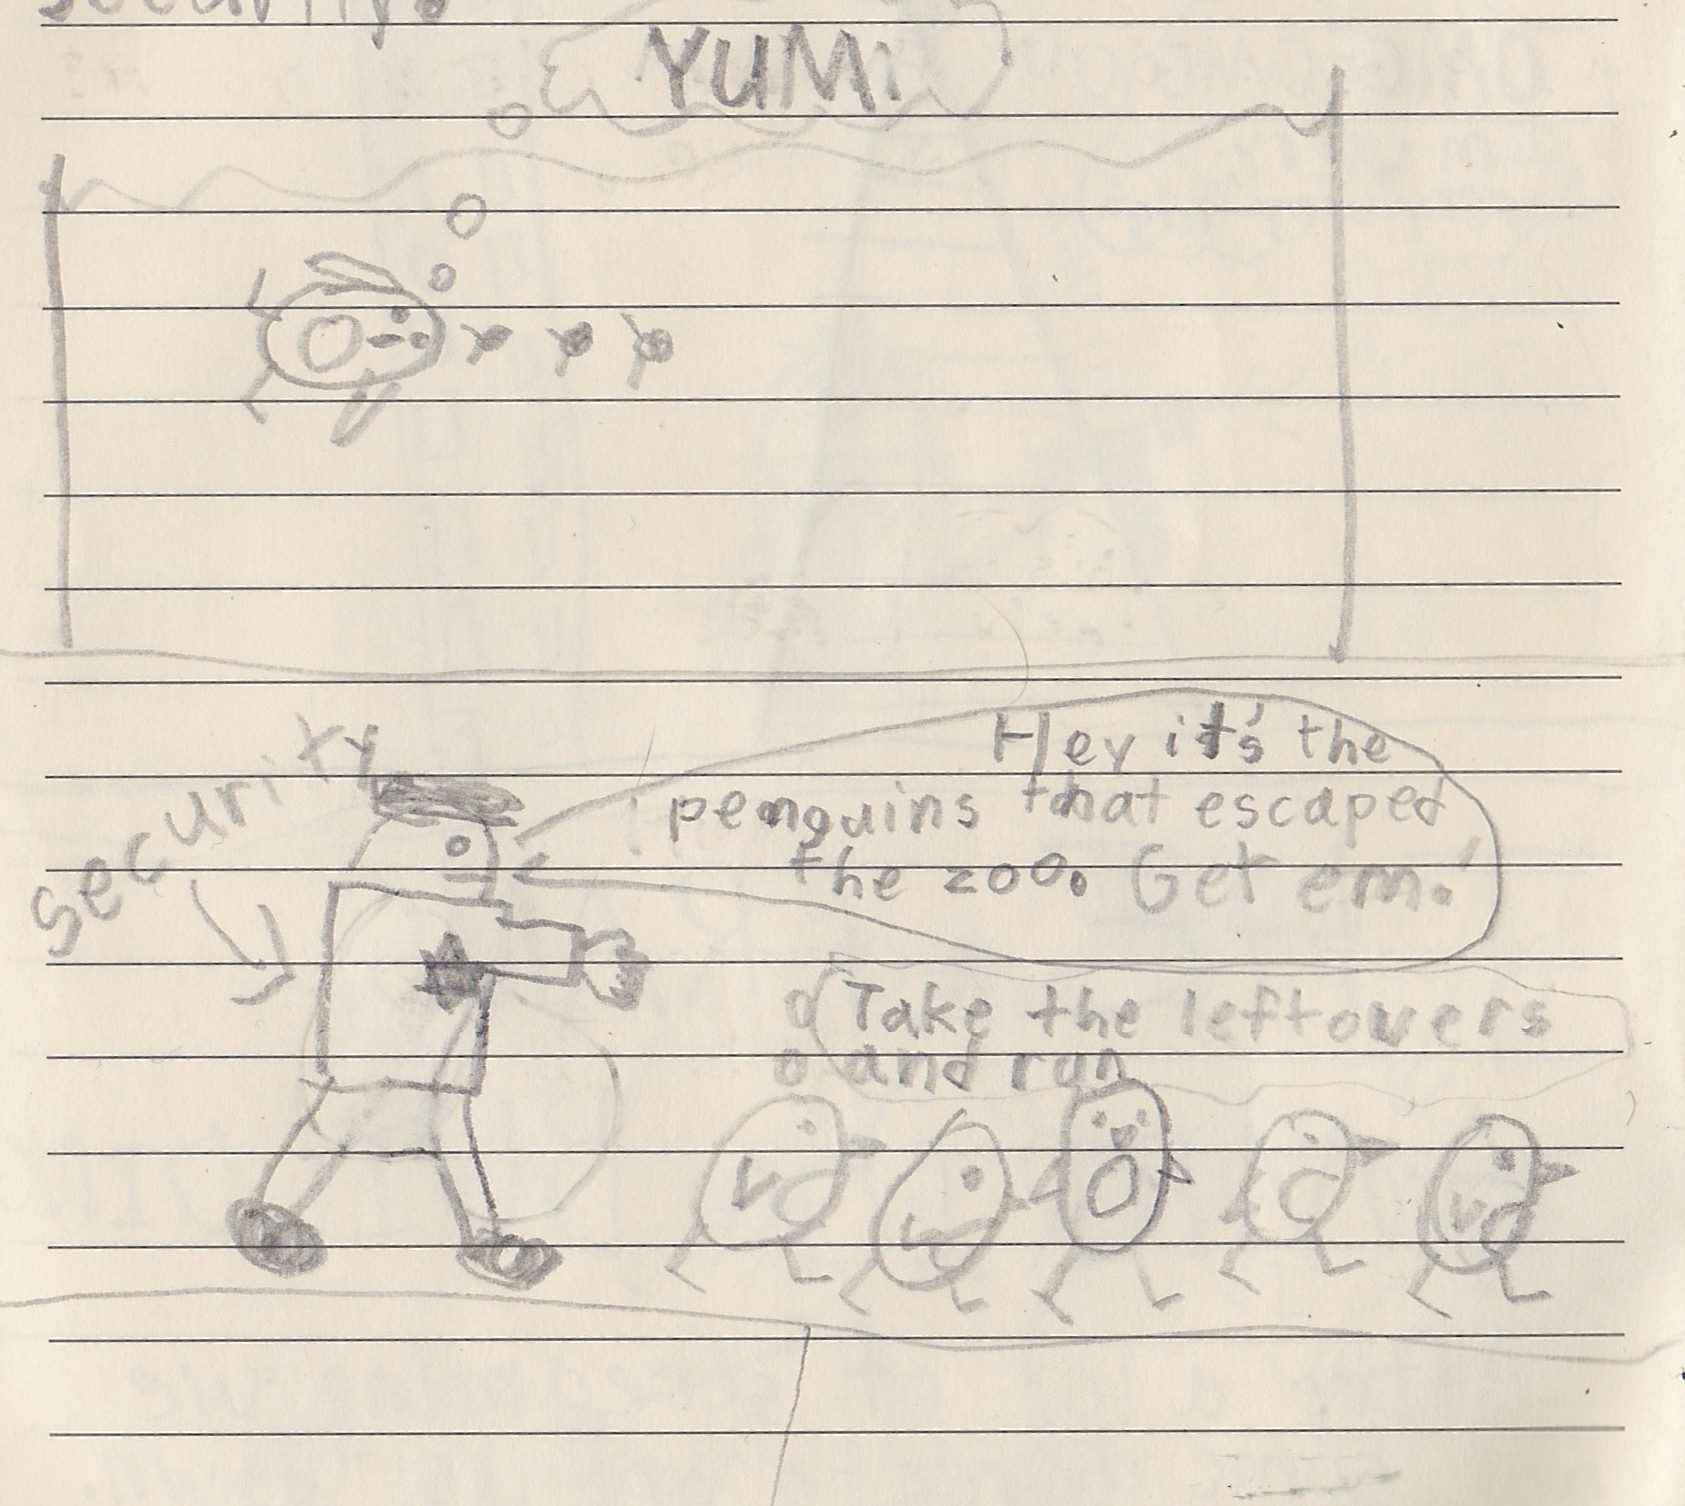 security.
YUMi
security
Hey it's the
penguins that escaped
the zoo. Get em!
Take the leftovers
and run